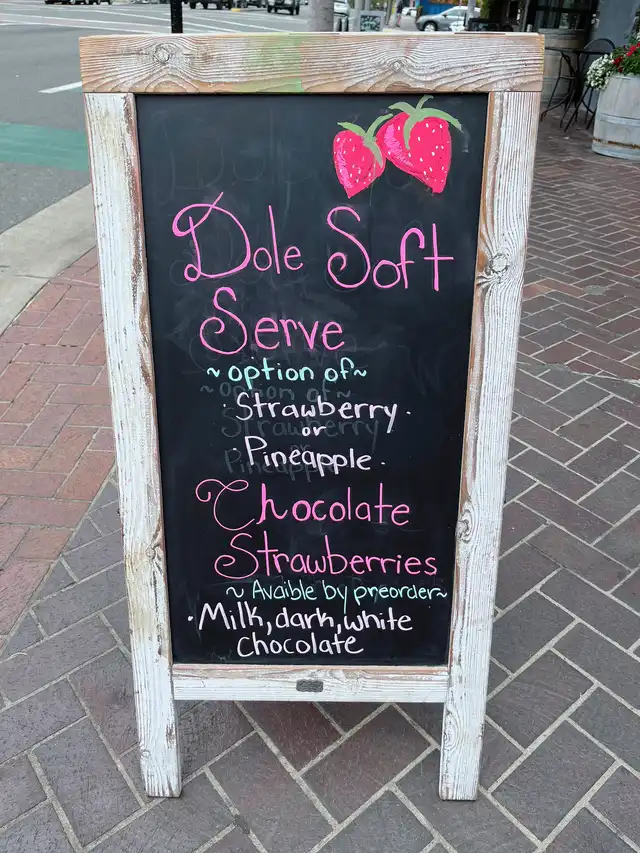 Dole Soft
Serve
~ option of ~
· Strawberry ·
or
· Pineapple ·
Chocolate
Strawberries
~ Avaible by preorder ~
· Milk, dark, white
Chocolate